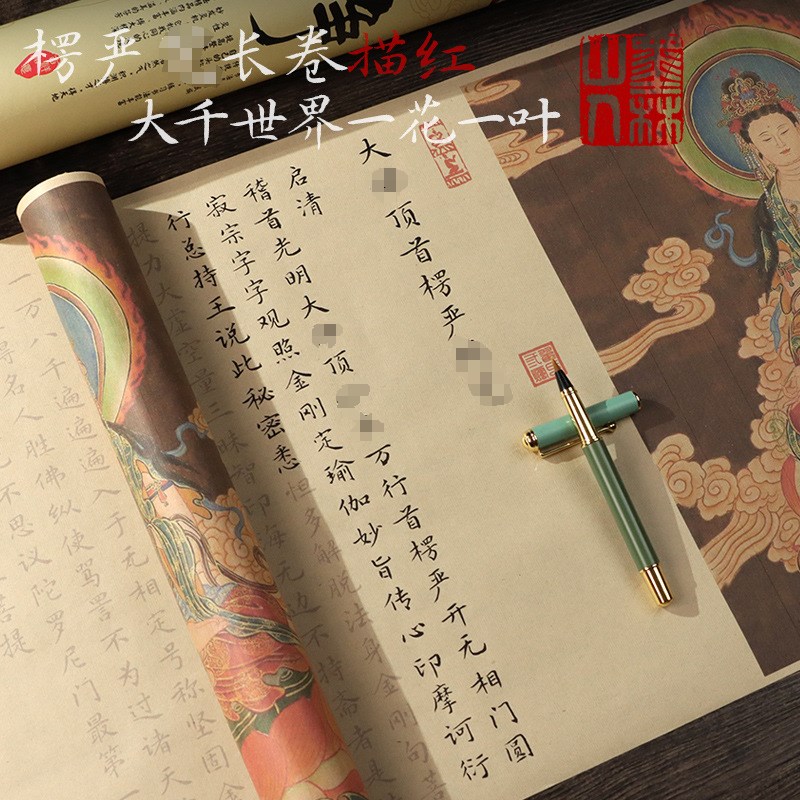 楞严 长卷描红
大千世界一花一叶
大 顶首楞严
启清
稽首光明大 顶 万行首楞严开无相门圆
寂宗字字观照金刚定瑜伽妙旨传心印摩诃衍
行总持王说此秘密悉恒多解脱法身金刚句菩
提力大虚空量三昧智印海无边不持斋者是
一万八千遍遍遍入于无相定号称坚固金
得名人胜佛纵使骂詈不为过诸天
不思议陀罗尼门最第一
菩提